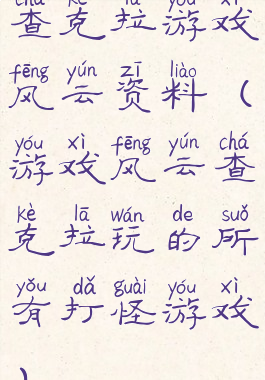 chá kè lā yóu xì
查克拉游戏
fēng yún zī liào
风云资料（
yóu xì fēng yún chá
游戏风云查
kè lā wán de suǒ
克拉玩的所
yǒu dǎ guài yóu xì
有打怪游戏
）